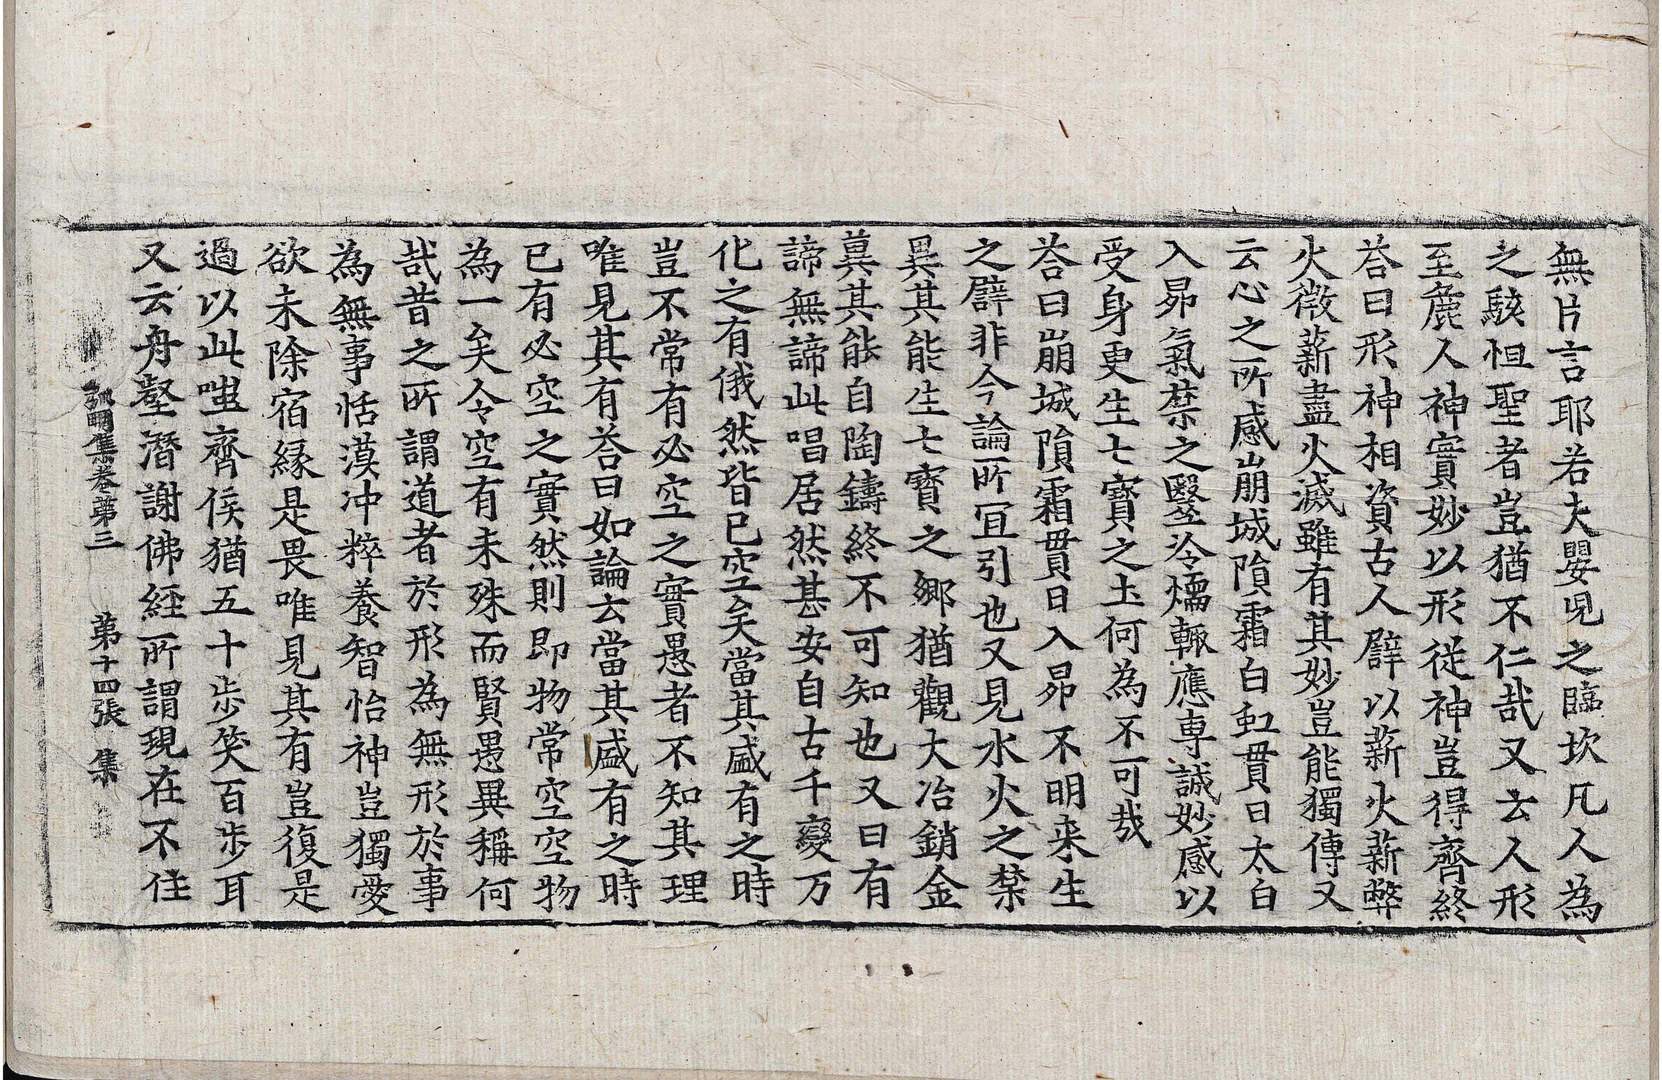 無片言耶若大嬰兒之臨坎凡人為
之駭怛聖者豈猶不仁哉又云人形
至麁人神實妙以形從神豈得齊終
荅曰形神相資古人譬以薪火薪弊
火微薪盡火滅雖有其妙豈能獨傳又
云心之所感崩城隕霜白虹貫日太白
入昴氣禁之醫冷煗輒應專誠妙感以
受身更生七寶之土何為不可哉
荅曰崩城隕霜貫日入昴不明来生
之譬非今論所宜引也又見水火之禁
兾其能生七寶之鄉猶觀大冶銷金
兾其能自陶鑄終不可知也又曰有
諦無諦此唱居然甚安自古千變万
化之有俄然皆已空矣當其盛有之時
豈不常有必空之實愚者不知其理
唯見其有荅曰如論云當其盛有之時
已有必空之實然則即物常空空物
為一矣今空有未殊而賢愚異稱何
哉昔之所謂道者於形為無形於事
為無事恬漠沖粹養智怡神豈獨愛
欲未除宿緣是畏唯見其有豈復是
過以此嗤齊侯猶五十步笑百步耳
又云舟壑潛謝佛經所謂現在不住
弘明集卷第三　第十四張　集